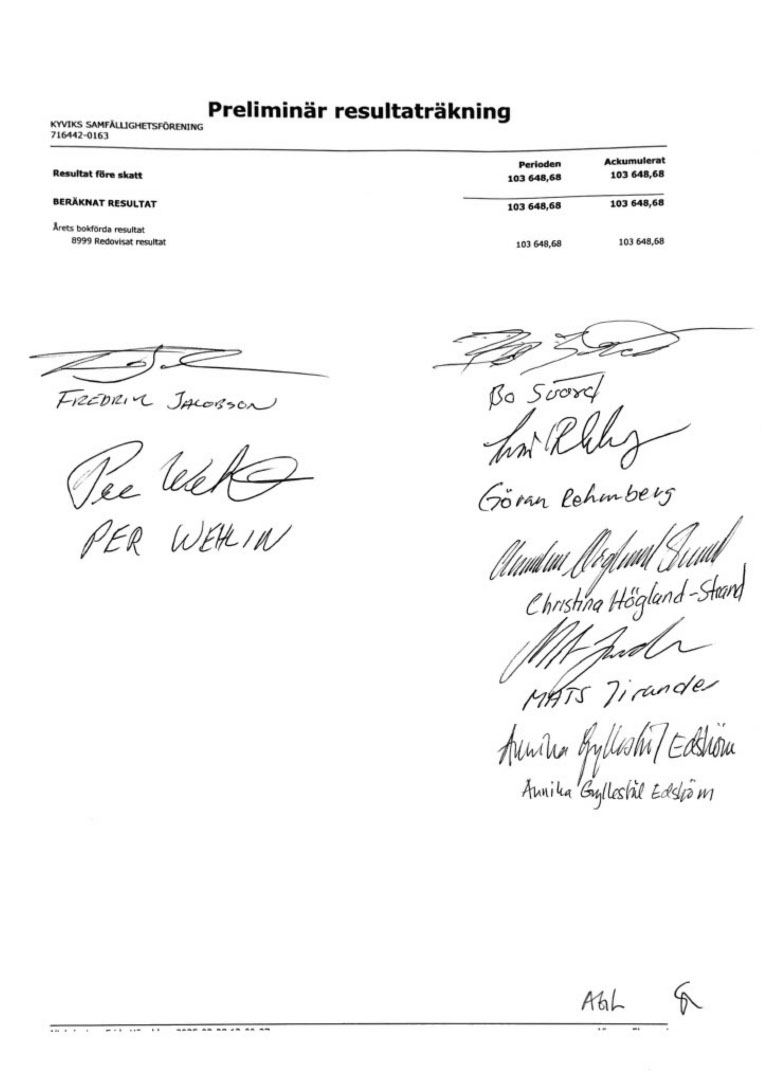 Preliminär resultaträkning
KYVIKS SAMFÄLLIGHETSFÖRENING
716442-0163
Perioden Ackumulerat
Resultat före skatt 103 648,68 103 648,68
BERÄKNAT RESULTAT 103 648,68 103 648,68
Årets bokförda resultat
8999 Redovisat resultat 103 648,68 103 648,68
FREDRIK JACOBSON
Bo Svärd
PER WEHLIN
Göran Rehnberg
Christina Högland-Strand
MATS Jirander
Annika Gyllestål Edström
Annika Gyllestål Edström